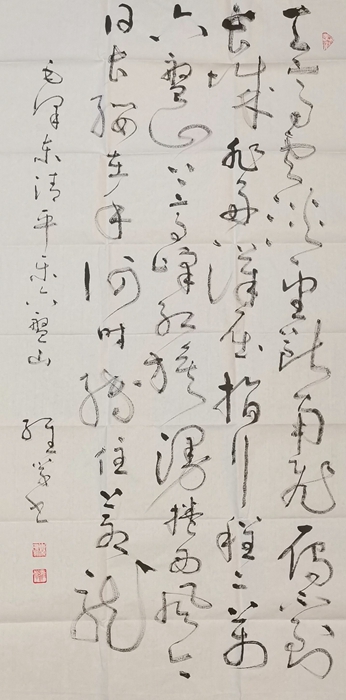 天高云淡望断南飞雁不到
长城非好汉屈指行程二万
六盘山上高峰红旗漫卷西风今
日长缨在手何时缚住苍龙
毛泽东清平乐六盘山
书